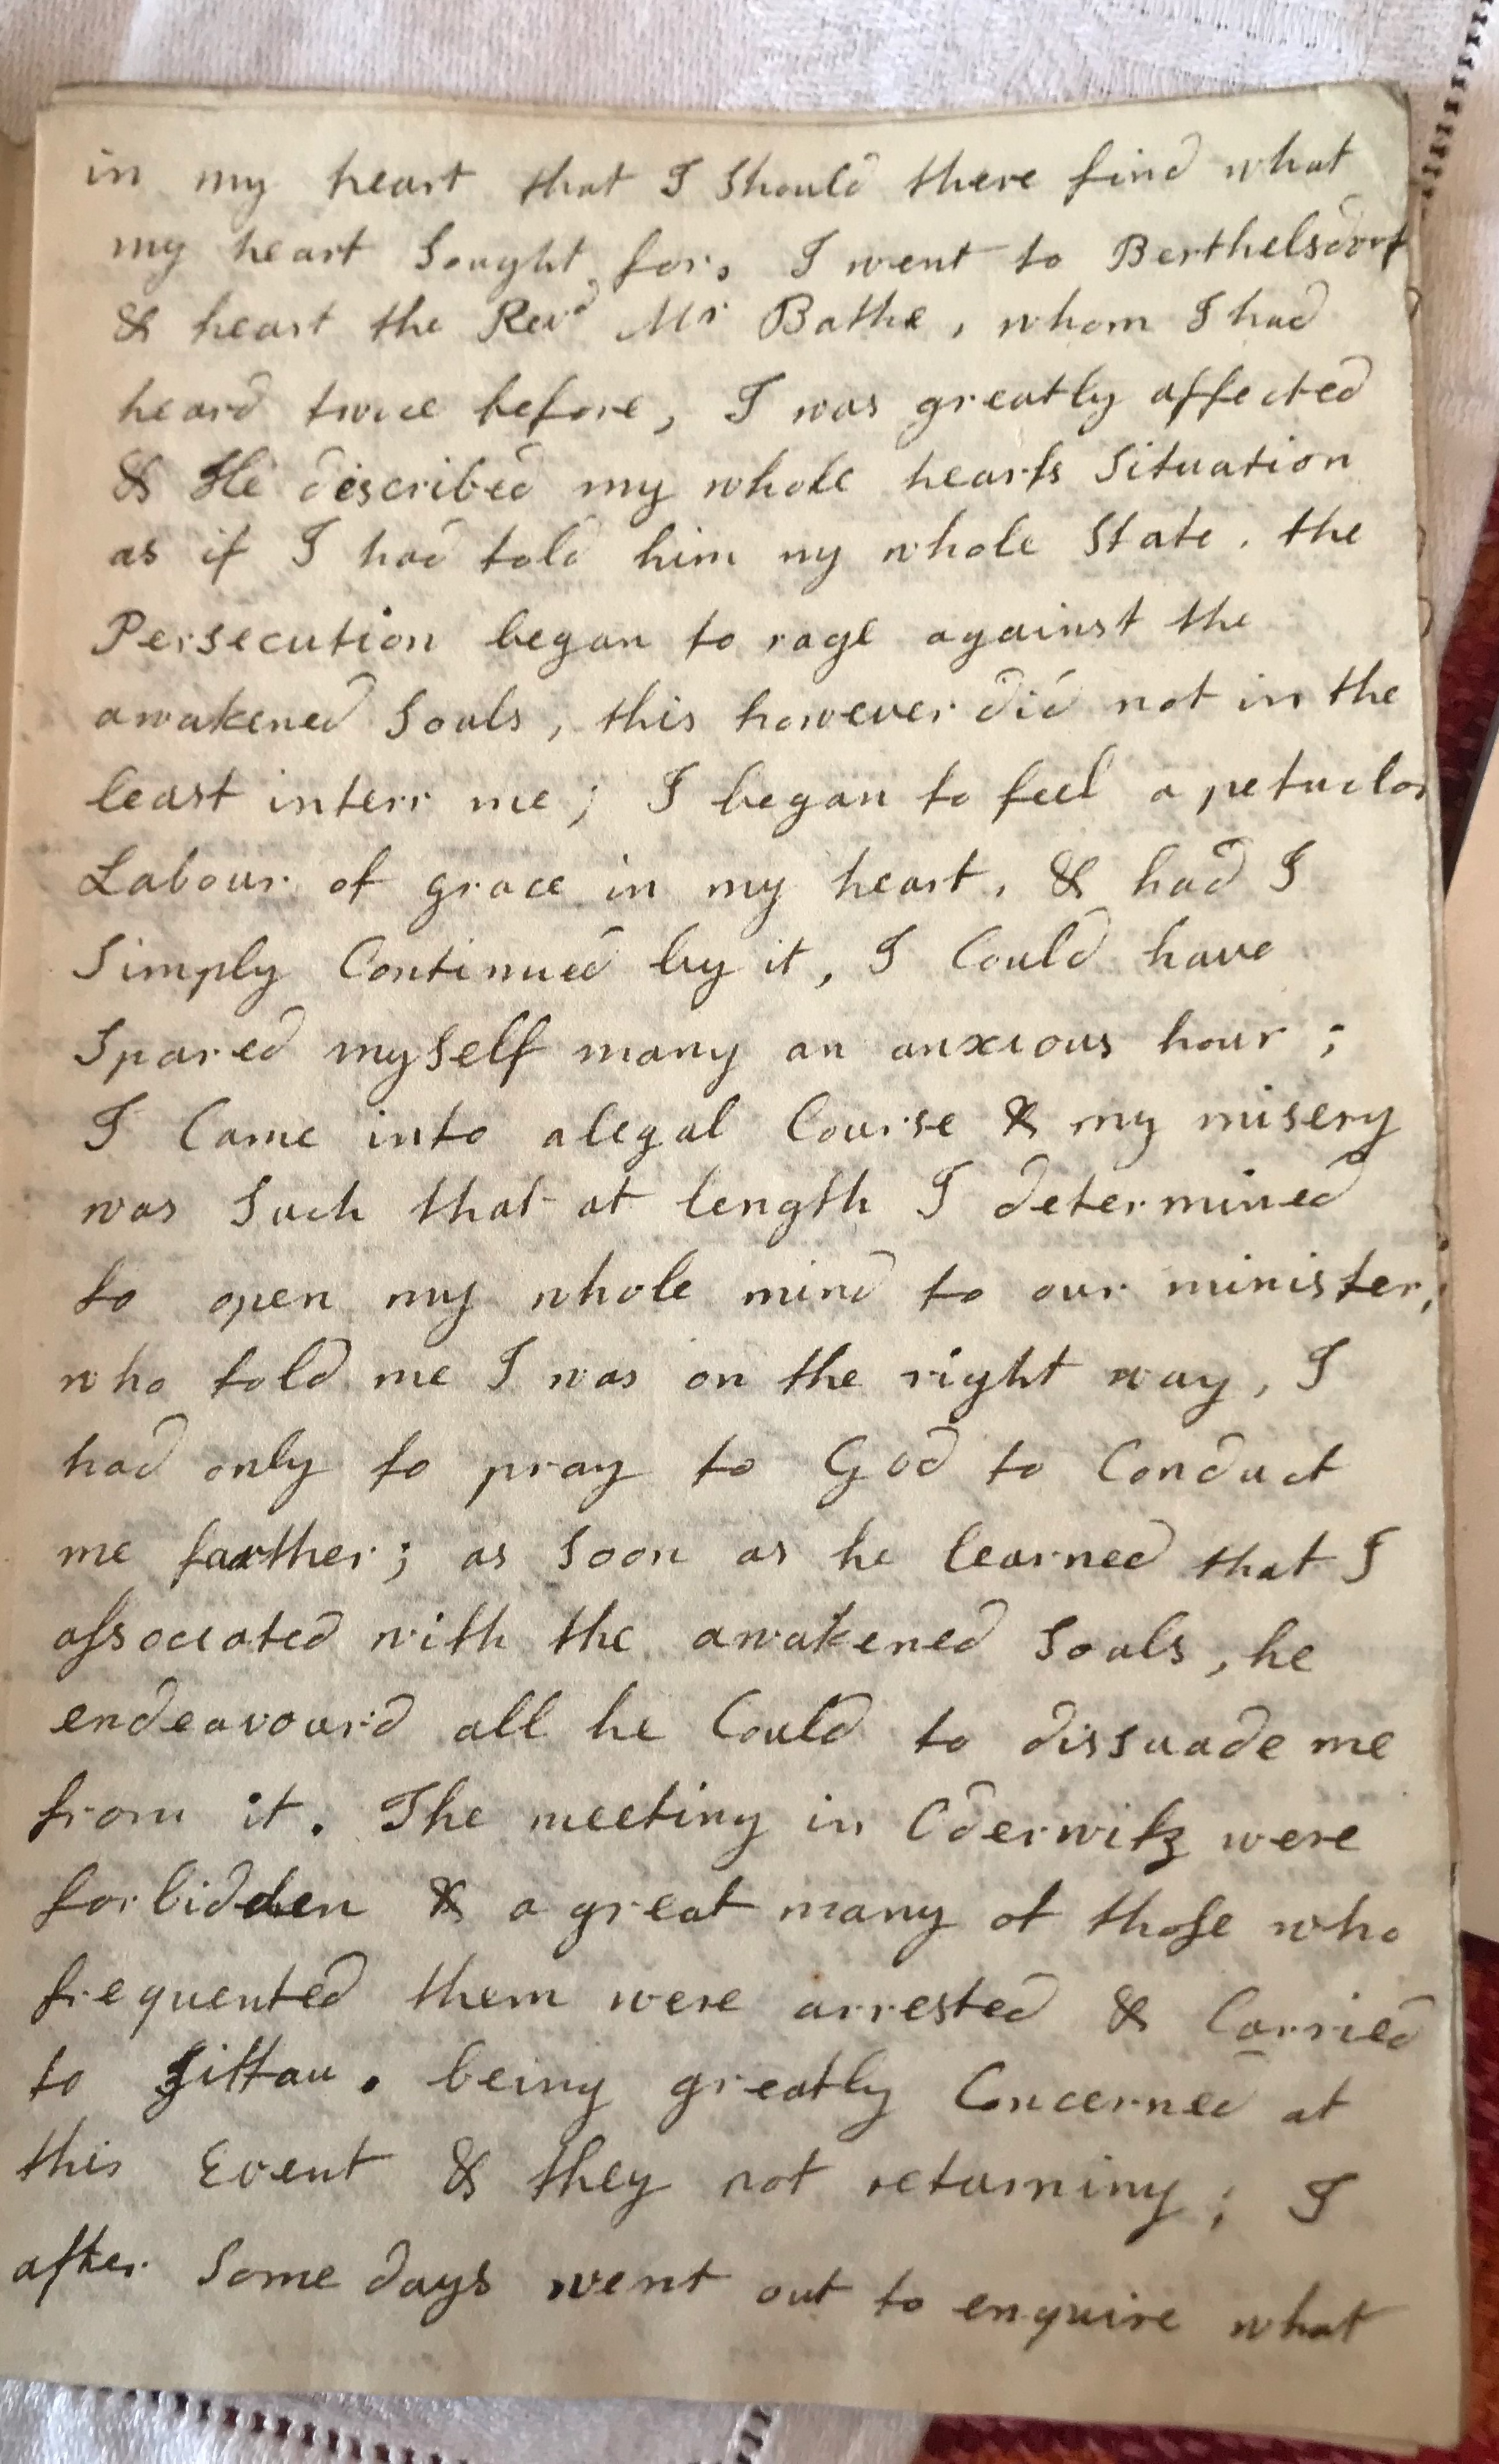 in my heart that I Should there find what
my heart Sought for, I went to Berthelsdorf
& heart the Revd Mr Bathe, whom I had
heard twice before, I was greatly affected
& He discribed my whole hearts Situation
as if I had told him my whole State. the
Persecution began to rage against the
awakened Souls, this however did not in the
least interr me; I began to feel a
Labour of grace in my heart, & had I
Simply Continued by it, I Could have
Spared mySelf many an anxious hour;
I Came into alegal Course & my misery
was Such that at length I determined
to open my whole mind to our minister,
who told me I was on the right way, I
had only to pray to God to Conduct
me farther; as Soon as he learned that I
associated with the awakened Souls, he
endeavourd all he Could to dissuade me
from it. The meeting in Oderwitz were
forbidden & a great many of those who
frequented them were arrested & Carried
to Zittau. being greatly Concerned at
this Event & they not returning; I
after Some days went out to enquire what